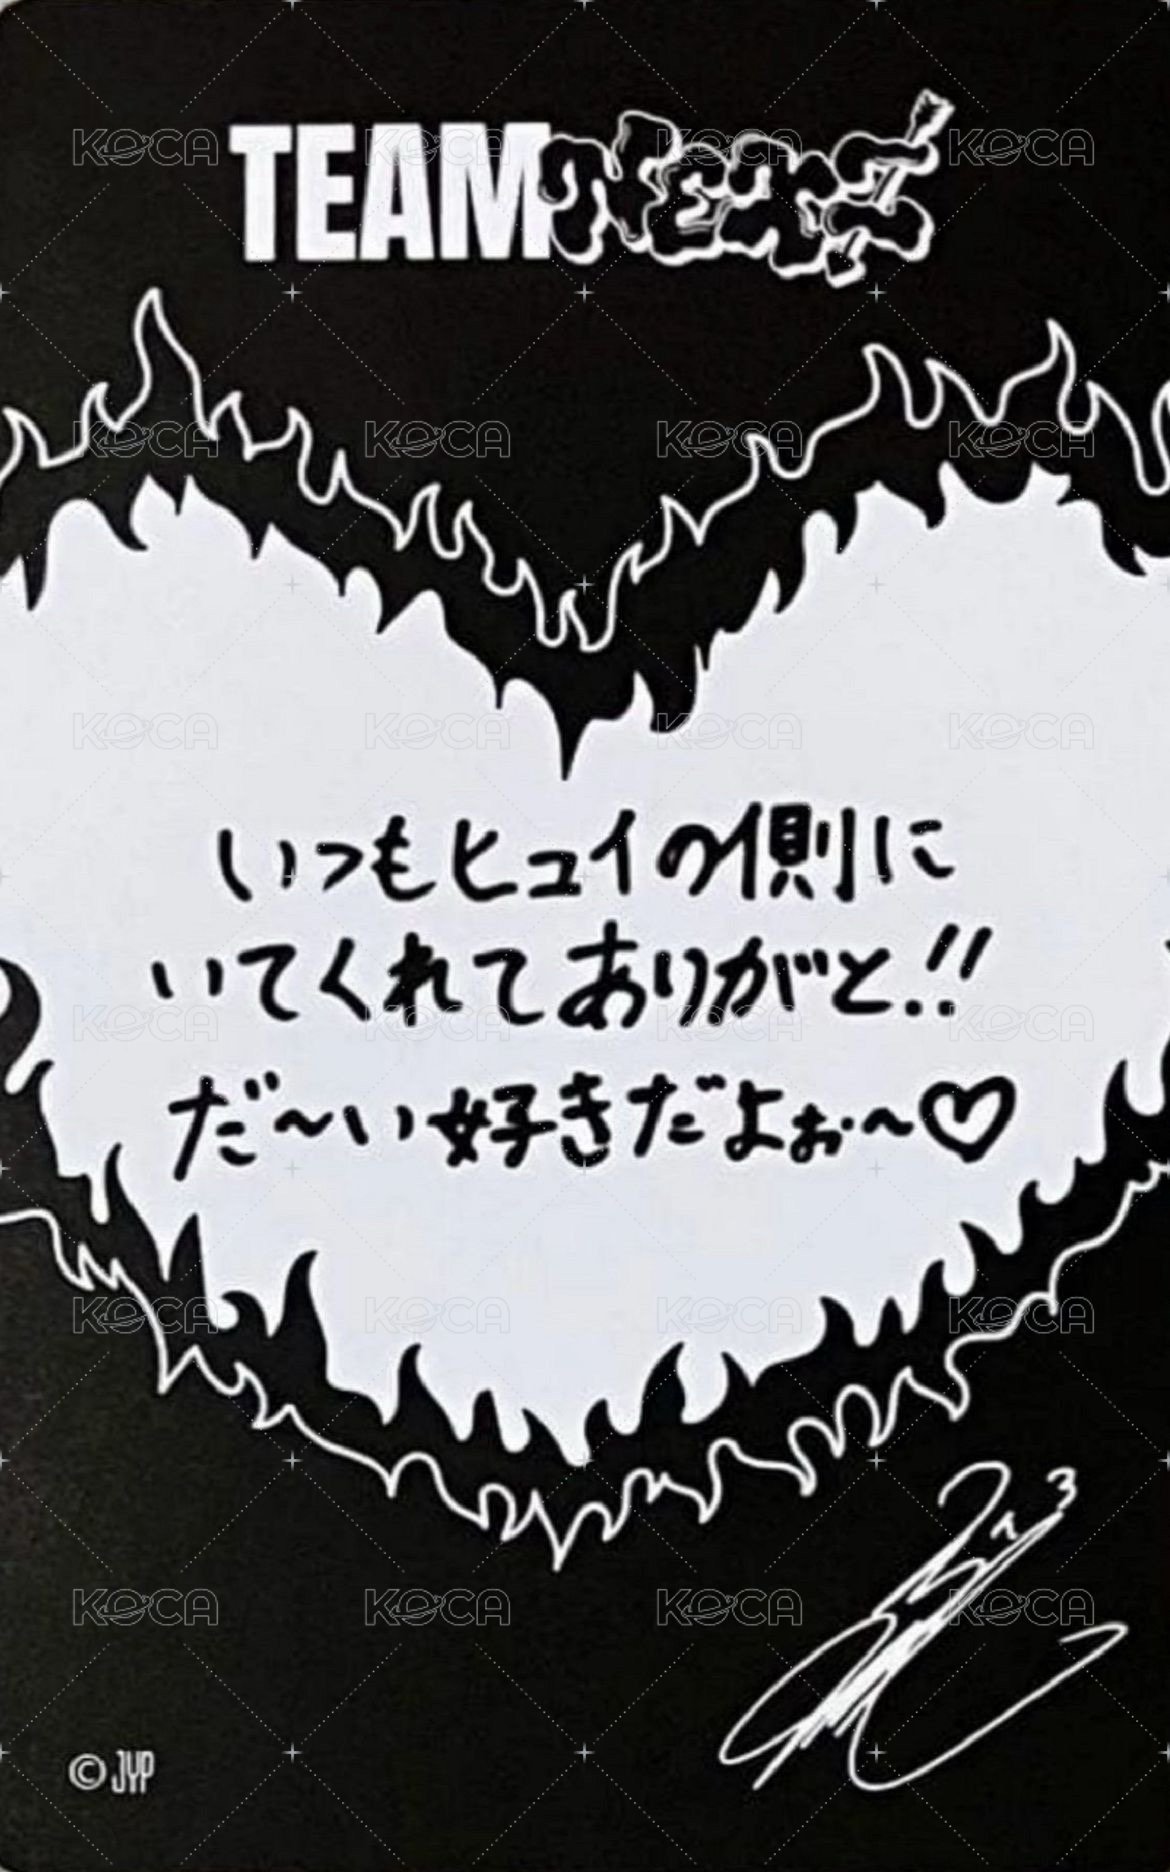 TEAM NEXZ
いつもヒュイの側に
いてくれてありがと!!
だ〜い好きだよぉ〜♡
© JYP
KOCA